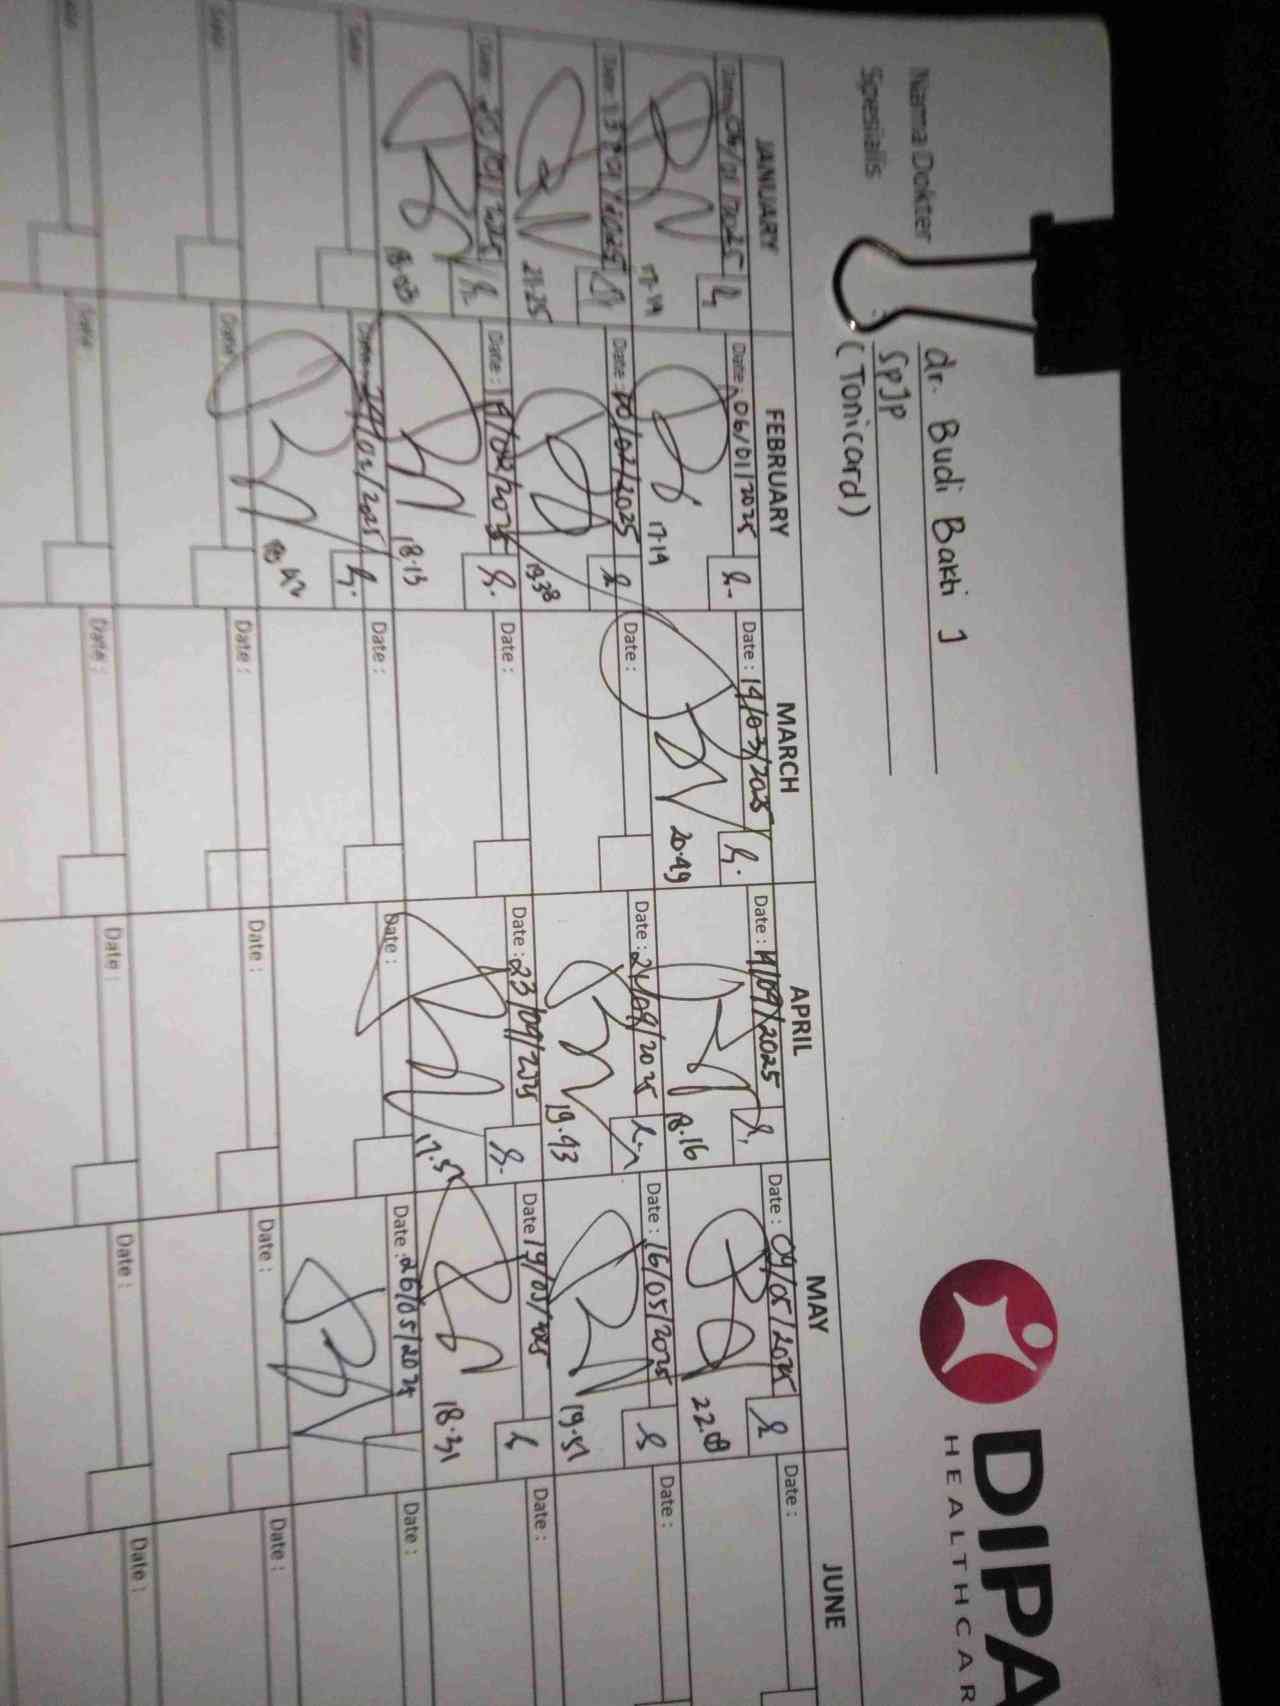 DIPA
HEALTHCAR
Nama Dokter : dr. Budi Bakti 1
Spesialis : SpJp
(Tonicard)
JANUARY FEBRUARY MARCH APRIL MAY JUNE
Date: 06/01/2025 Date: 06/01/2025 Date: 14/03/2025 Date: 14/04/2025 Date: 09/05/2025 Date:
17.19 17.19 20.49 18.16 22.08
Date: 13/01/2025 Date: 10/02/2025 Date: Date: 21/04/2025 Date: 16/05/2025 Date:
21.25 19.38 19.43 19.51
Date: 20/01/2025 Date: 17/02/2025 Date: Date: 23/04/2025 Date: 19/05/2025 Date:
18.03 18.13 17.5 18.31
Date: Date: 24/02/2025 Date: Date: Date: 26/05/2025 Date:
18.42
Date: Date: Date: Date: Date: Date:
Date: Date: Date: Date: Date: Date: